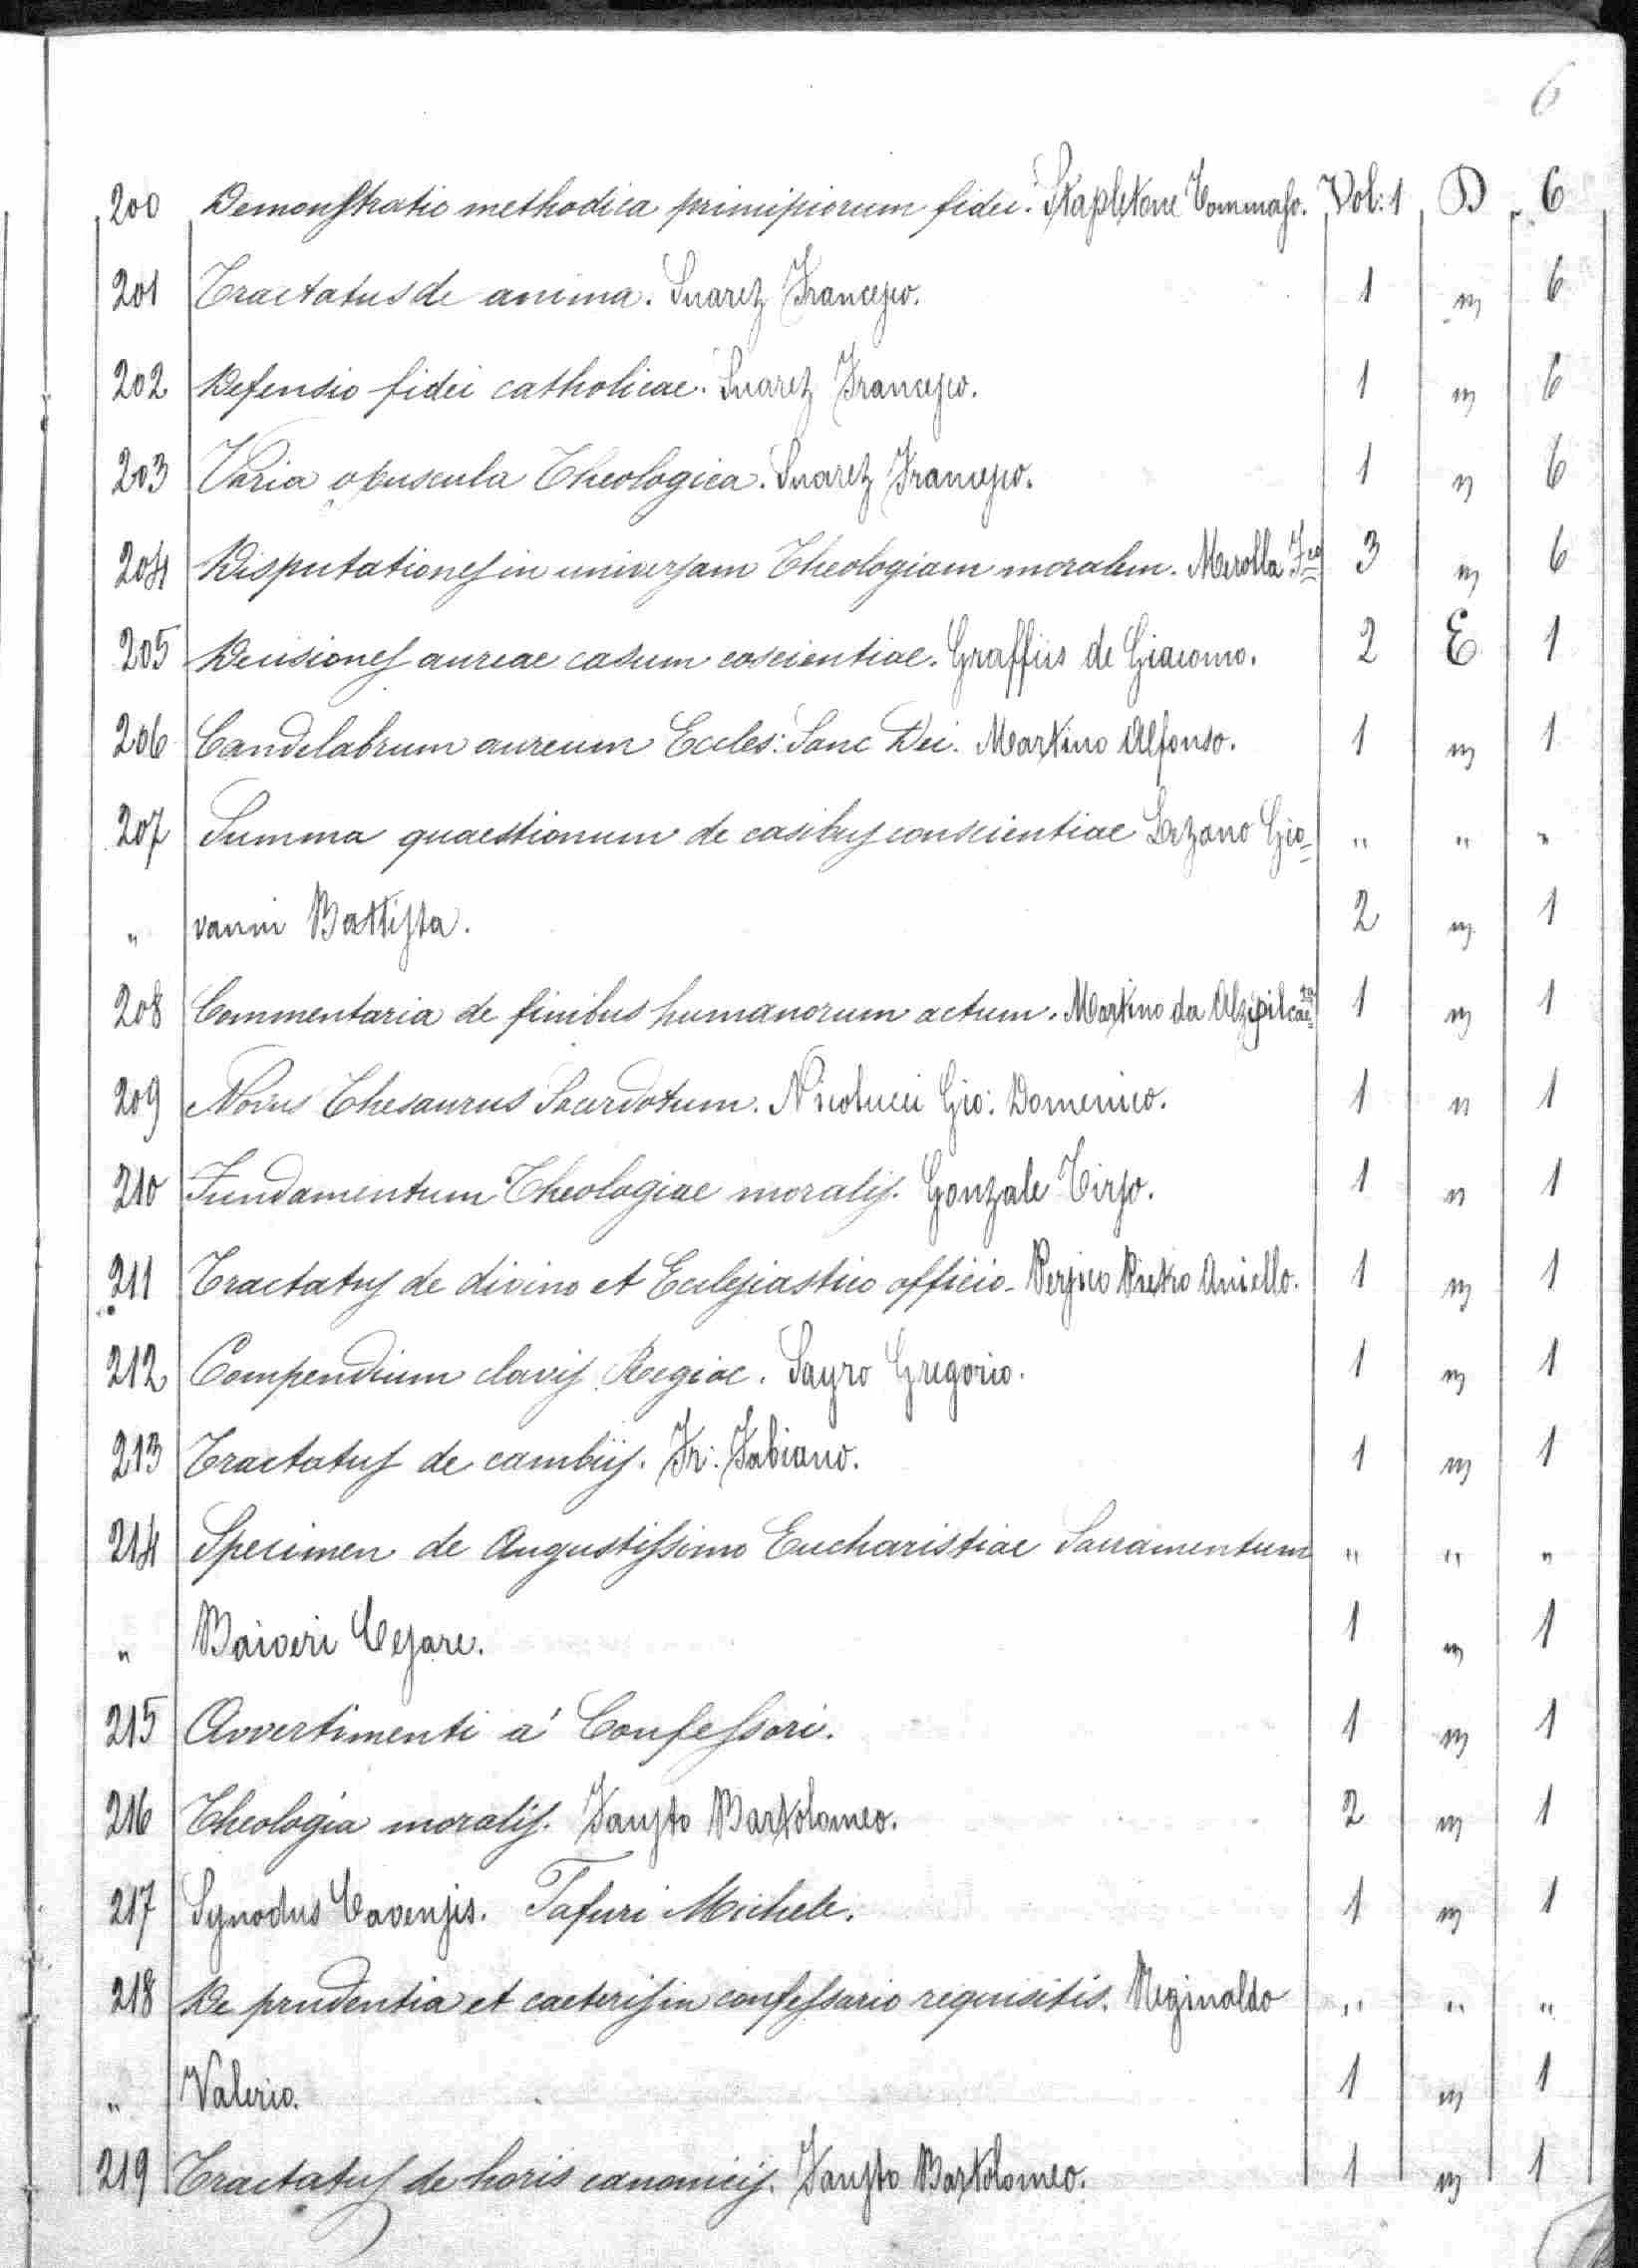 6
200 Demonstratio methodica principiorum fidei. Stapletone Tommaso. Vol: 1 D 6
201 Tractatus de anima. Suarez Francesco. 1 " 6
202 Defensio fidei catholicae. Suarez Francesco. 1 " 6
203 Varia opuscula Theologica. Suarez Francesco. 1 " 6
204 Disputationes in universam Theologiam moralem. Merolla Fco 3 " 6
205 Decisiones aureae casum coscientiae. Graffiis de Giacomo. 2 E 1
206 Candelabrum aureum Eccles: Sanc Dei. Martino Alfonso. 1 " 1
207 Summa quaestionum de casibus conscientiae Lezano Gio= " " "
" vanni Battista. 2 " 1
208 Commentaria de finibus humanorum actum. Martino da 1 " 1
209 Novus Thesaurus Sacerdotum. Nicolucci Gio: Domenico. 1 " 1
210 Fundamentum Theologiae moralis. Gonzale Tirso. 1 " 1
211 Tractatus de divino et Ecclesiastico officio - Persico Pietro Aniello. 1 " 1
212 Compendium clavis Regiae. Sayro Gregorio. 1 " 1
213 Tractatus de cambiis. Fr: Fabiano. 1 " 1
214 Specimen de Augustissimo Eucharistiae Sacramentum " " "
" Baiveri Cesare. 1 " 1
215 Avvertimenti a' Confessori. 1 " 1
216 Theologia moralis. Fausto Bartolomeo. 2 " 1
217 Synodus Cavensis. Tafuri Michele. 1 " 1
218 De prudentia et caeteris in confessario requisitis. Reginaldo " " "
" Valerio. 1 " 1
219 Tractatus de horis canonicis. Fausto Bartolomeo. 1 " 1